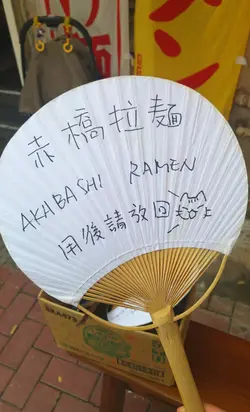 赤橋拉麵
AKABASHI RAMEN
用後請放回